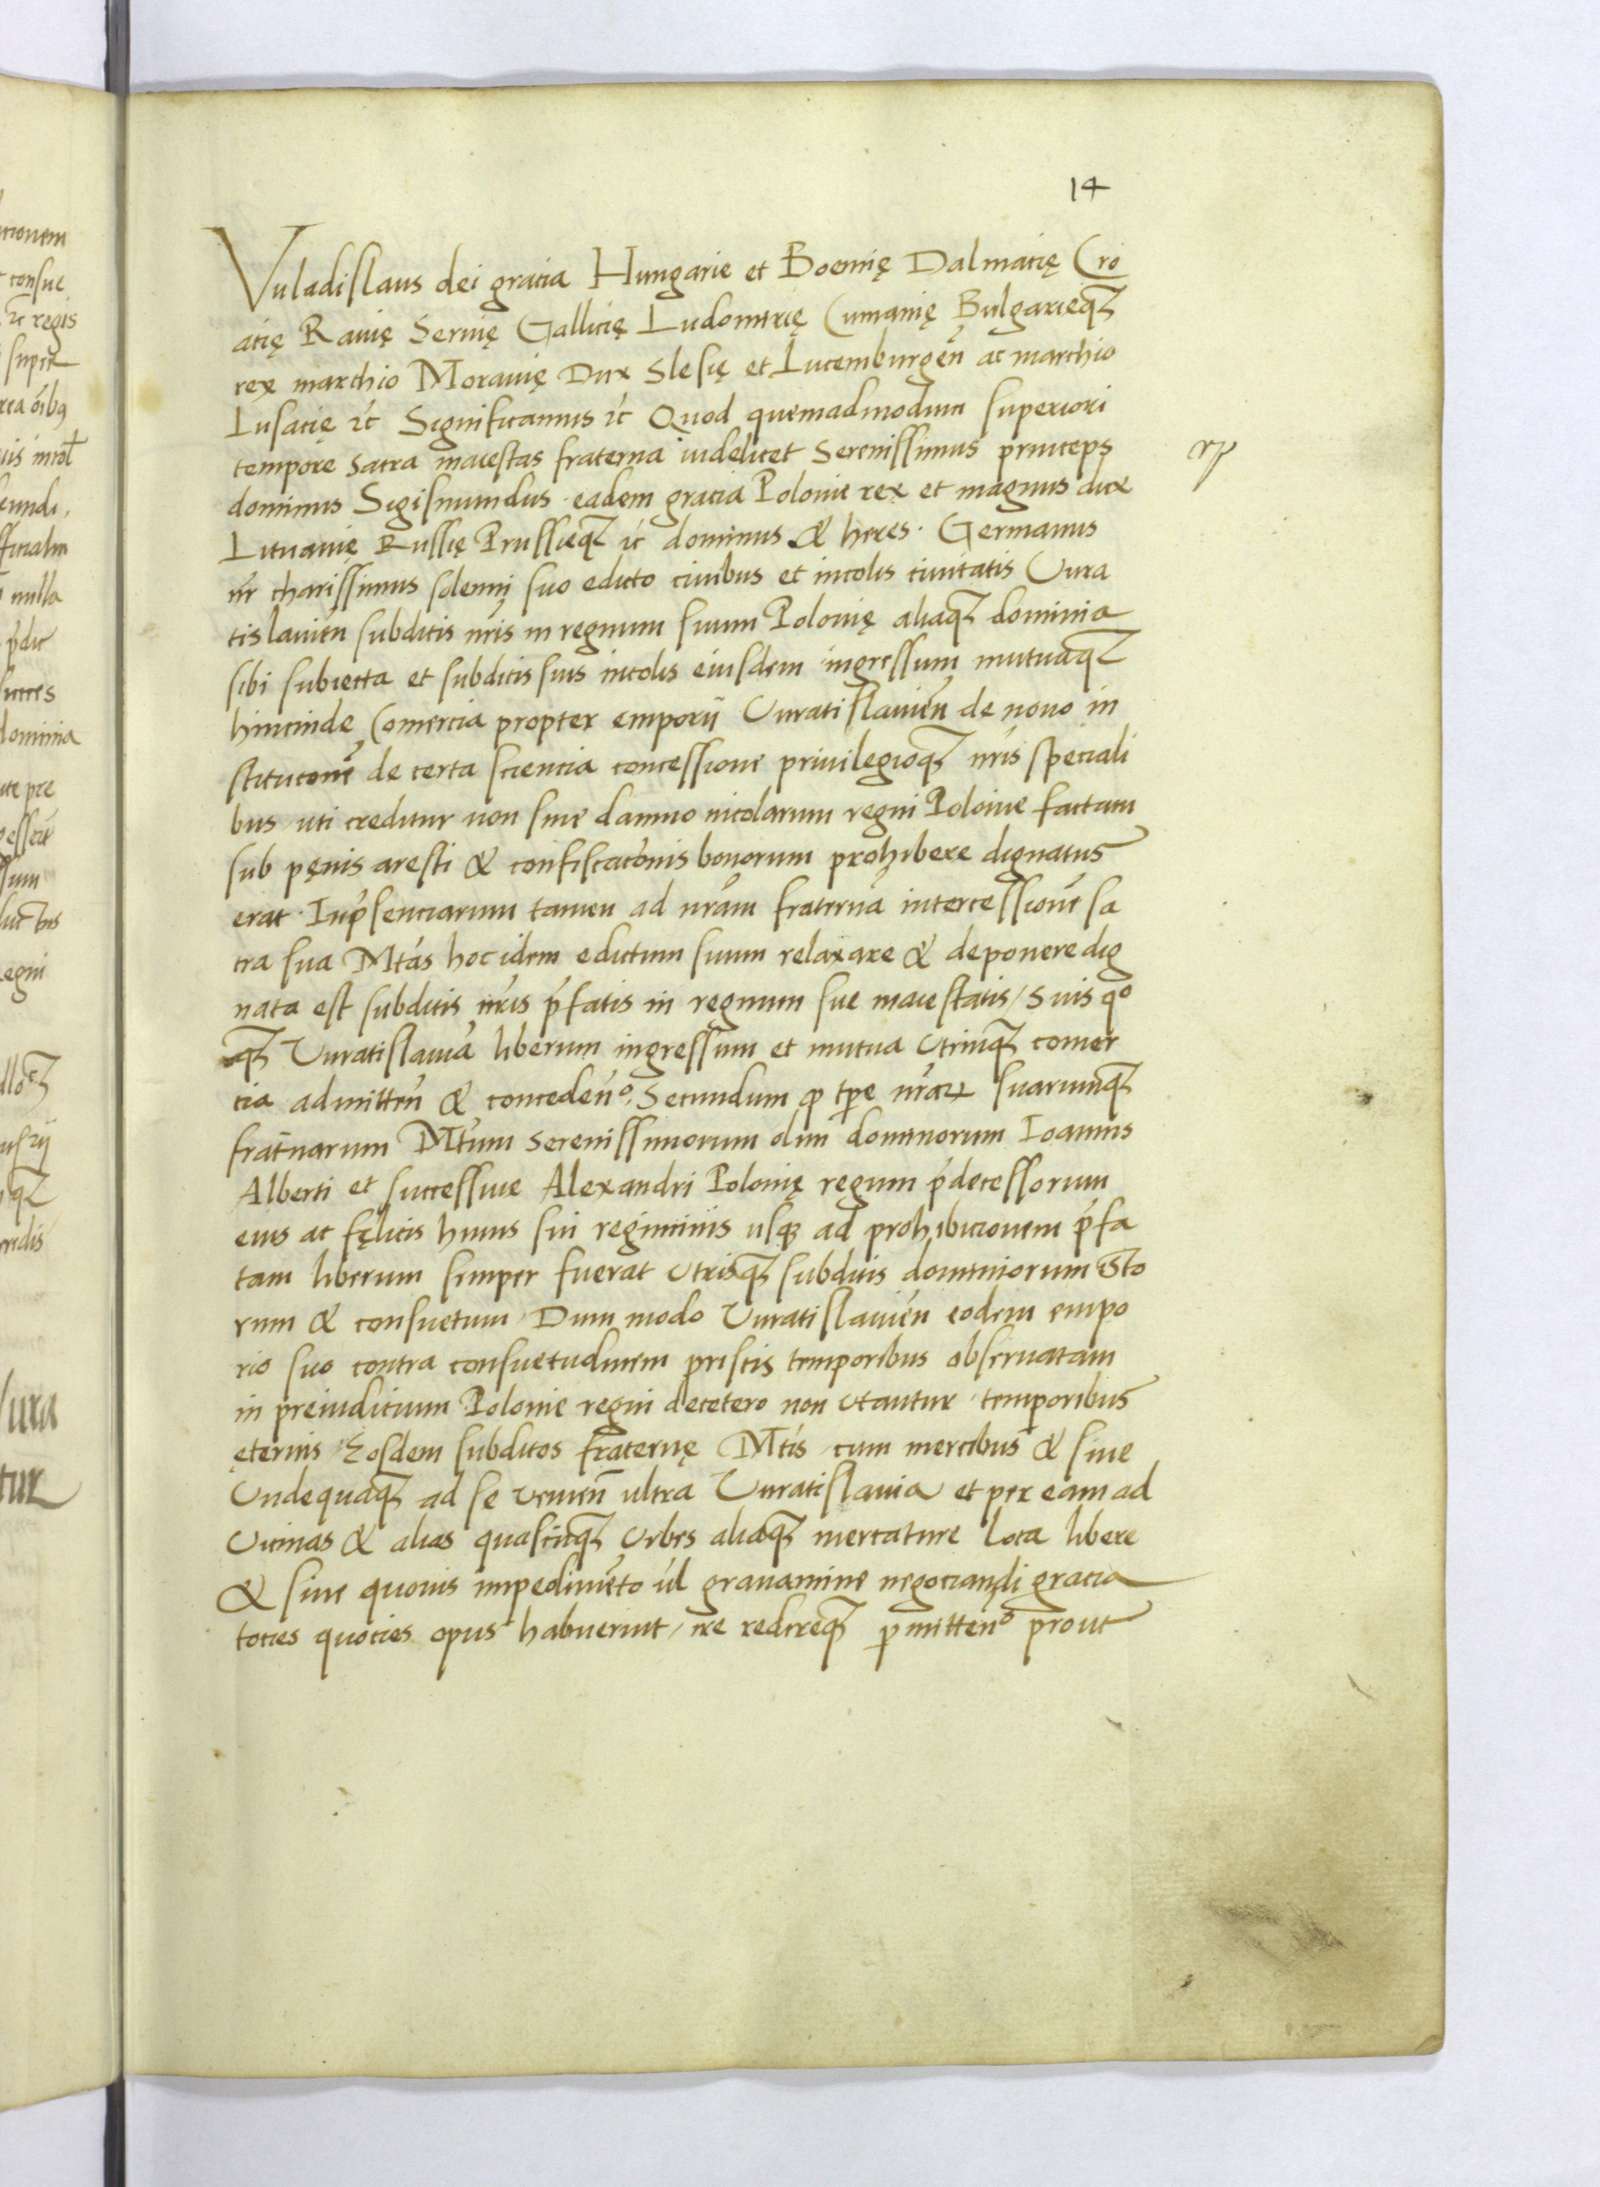 14
Vuladislaus dei gracia Hungarie et Boemię Dalmacię Cro
acię Ramę Seruię Gallicię Ludomirię Cumanię Bulgarieqꝫ
rex marchio Morauię Dux Slesię et Lucemburgeñ ac marchio
Lusacię ꝛc̃ Significamus ꝛc̃ Quod quemadmodum superiori
tempore sacra maiestas fraterna uidelicet Serenissimus princeps
dominus Sigismundus eadem gracia Polonie rex et magnus dux
Lituanię Russię Prussieqꝫ ꝛc̃ dominus & heres. Germanus
nr̃ charissimus solenni suo edicto ciuibus et incolis ciuitatis Vura
tislauień subditis nr̃is in regnum suum Polonię aliaqꝫ dominia
sibi subiecta et subditis suis incolis eiusdem ingressum mutuaqꝫ
hincinde Comercia propter emporii Vuratislauień de nouo in
stitucionẽ de certa sciencia concessione priuilegioqꝫ nr̃is speciali
bus uti creditur non sine damno incolarum regni Polonie factam
sub pęnis aresti & confiscacõnis bonorum prohibere dignatus
erat. Inp̃senciarum tamen ad nr̃am fraternã intercessionẽ sa
cra sua Mtás hoc idem edictum suum relaxare & deponere dig
nata est subditis nr̃is p̃fatis in regnum sue maiestatis / Suis qº
qꝫ Vuratislauiã liberum ingressum et mutua Vtrinqꝫ comer
cia admitteñ & concedeñº. Secundum ꝙ tp̃e nr̃aꝝ suarumqꝫ
frat̃narum Mt̃um Serenissimorum olim dominorum Ioannis
Alberti et successiue Alexandri Polonię regum p̃decessorum
eius ac fęlicis huius sui regiminis usqꝫ ad prohibicionem p̃fa
tam liberum semper fuerat Vtrisqꝫ subditis dominiorum isto
rum & consuetum. Dum modo Vuratislauień eodem empo
rio suo contra consuetudinem priscis temporibus obseruatam
in preiudicium Polonie regni decetero non Vtantur temporibus
ęternis. Eosdem subditos fraternę Mtis cum mercibus & sine
Vndequaqꝫ ad se venieñ ultra Vuratislauia et per eam ad
Vicinas & alias quascũqꝫ Vrbes aliaqꝫ mercature loca libere
& sine quouis impedimẽto ul̃ grauamine negociandi gracia
tocies quocies opus habuerint / ire redireqꝫ ꝑmitteñº prout